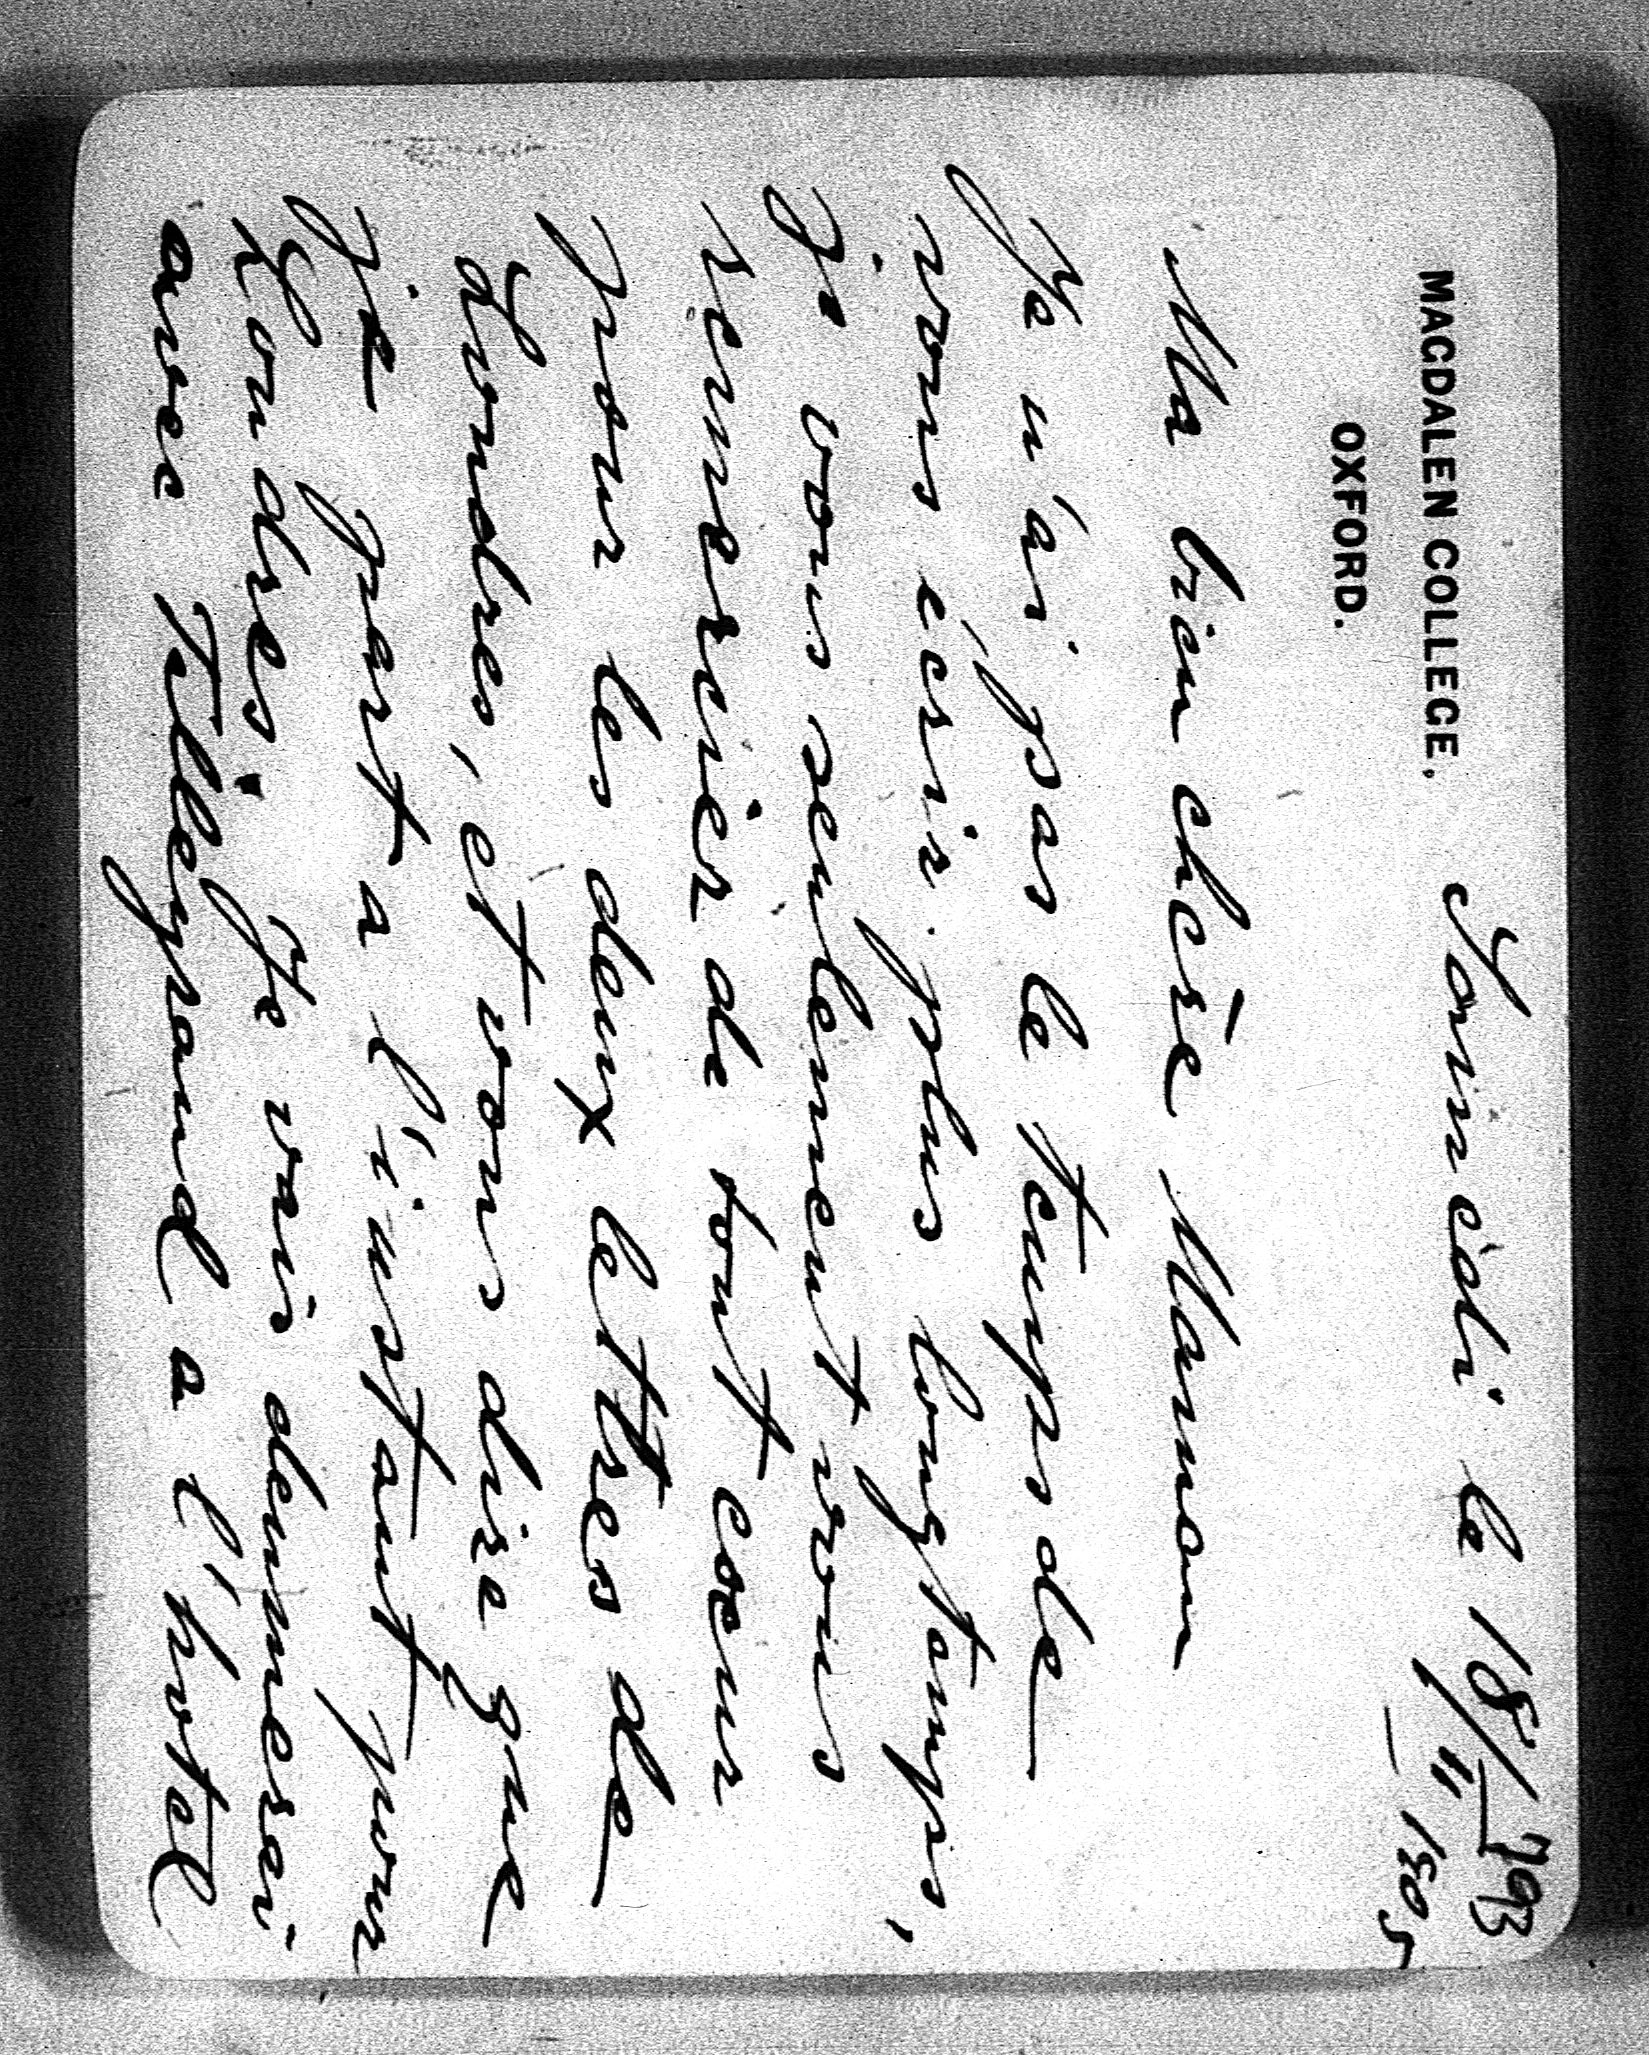 793
MAGDALEN COLLEGE,
OXFORD.
le 18/11 1905
Ma bien chère Maman
Je n'ai pas le temps de
vous écrir plus longtamps,
je vous seulement vous
remercier de tout coeur
pour les deux lettres de
Londres, et vous dire que
je part a l'instant pour
Londres. Je vais demmerai
avec Tilleyrand a l'hotel